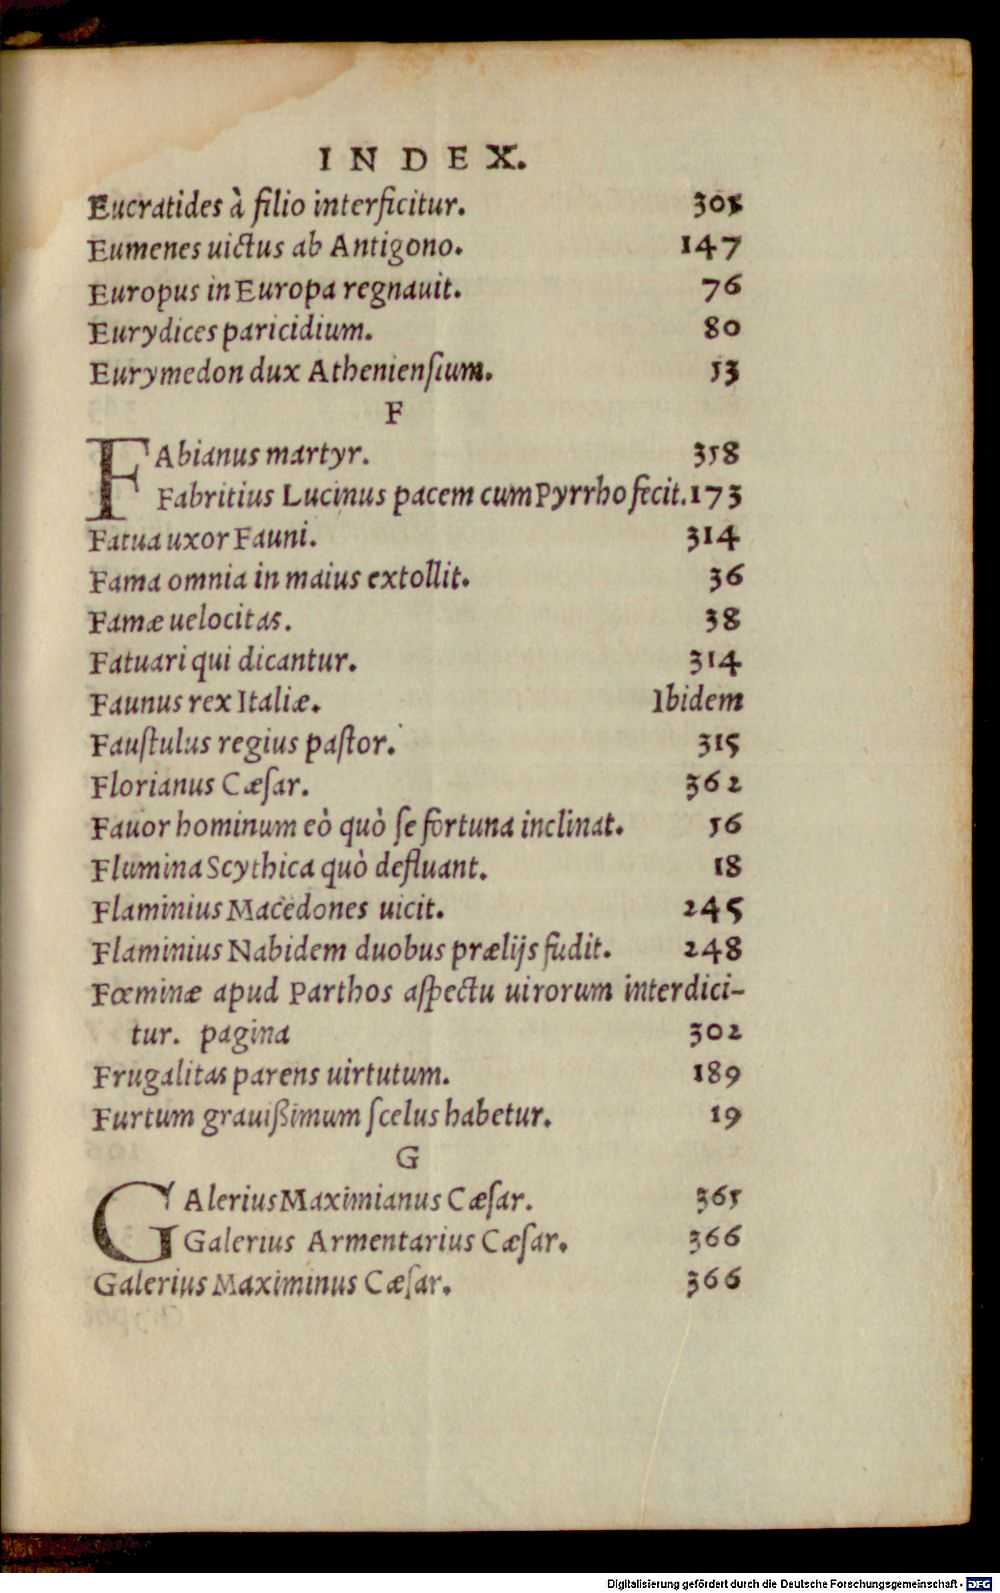 INDEX.
Eucratides à filio interficitur. 305
Eumenes uictus ab Antigono. 147
Europus in Europa regnauit. 76
Eurydices paricidium. 80
Eurymedon dux Atheniensium. 53
F
FAbianus martyr. 358
Fabritius Lucinus pacem cum Pyrrho fecit. 173
Fatua uxor Fauni. 314
Fama omnia in maius extollit. 36
Famæ uelocitas. 38
Fatuari qui dicantur. 314
Faunus rex Italiæ. Ibidem
Fauſtulus regius paſtor. 315
Florianus Cæſar. 362
Fauor hominum eò quò ſe fortuna inclinat. 56
Flumina Scythica quò defluant. 18
Flaminius Macedones uicit. 245
Flaminius Nabidem duobus prælijs fudit. 248
Fœminæ apud Parthos aſpectu uirorum interdici-
tur. pagina 302
Frugalitas parens uirtutum. 189
Furtum grauißimum ſcelus habetur. 19
G
GAlerius Maximianus Cæſar. 365
Galerius Armentarius Cæſar. 366
Galerius Maximinus Cæſar. 366
Digitalisierung gefördert durch die Deutsche Forschungsgemeinschaft - DFG